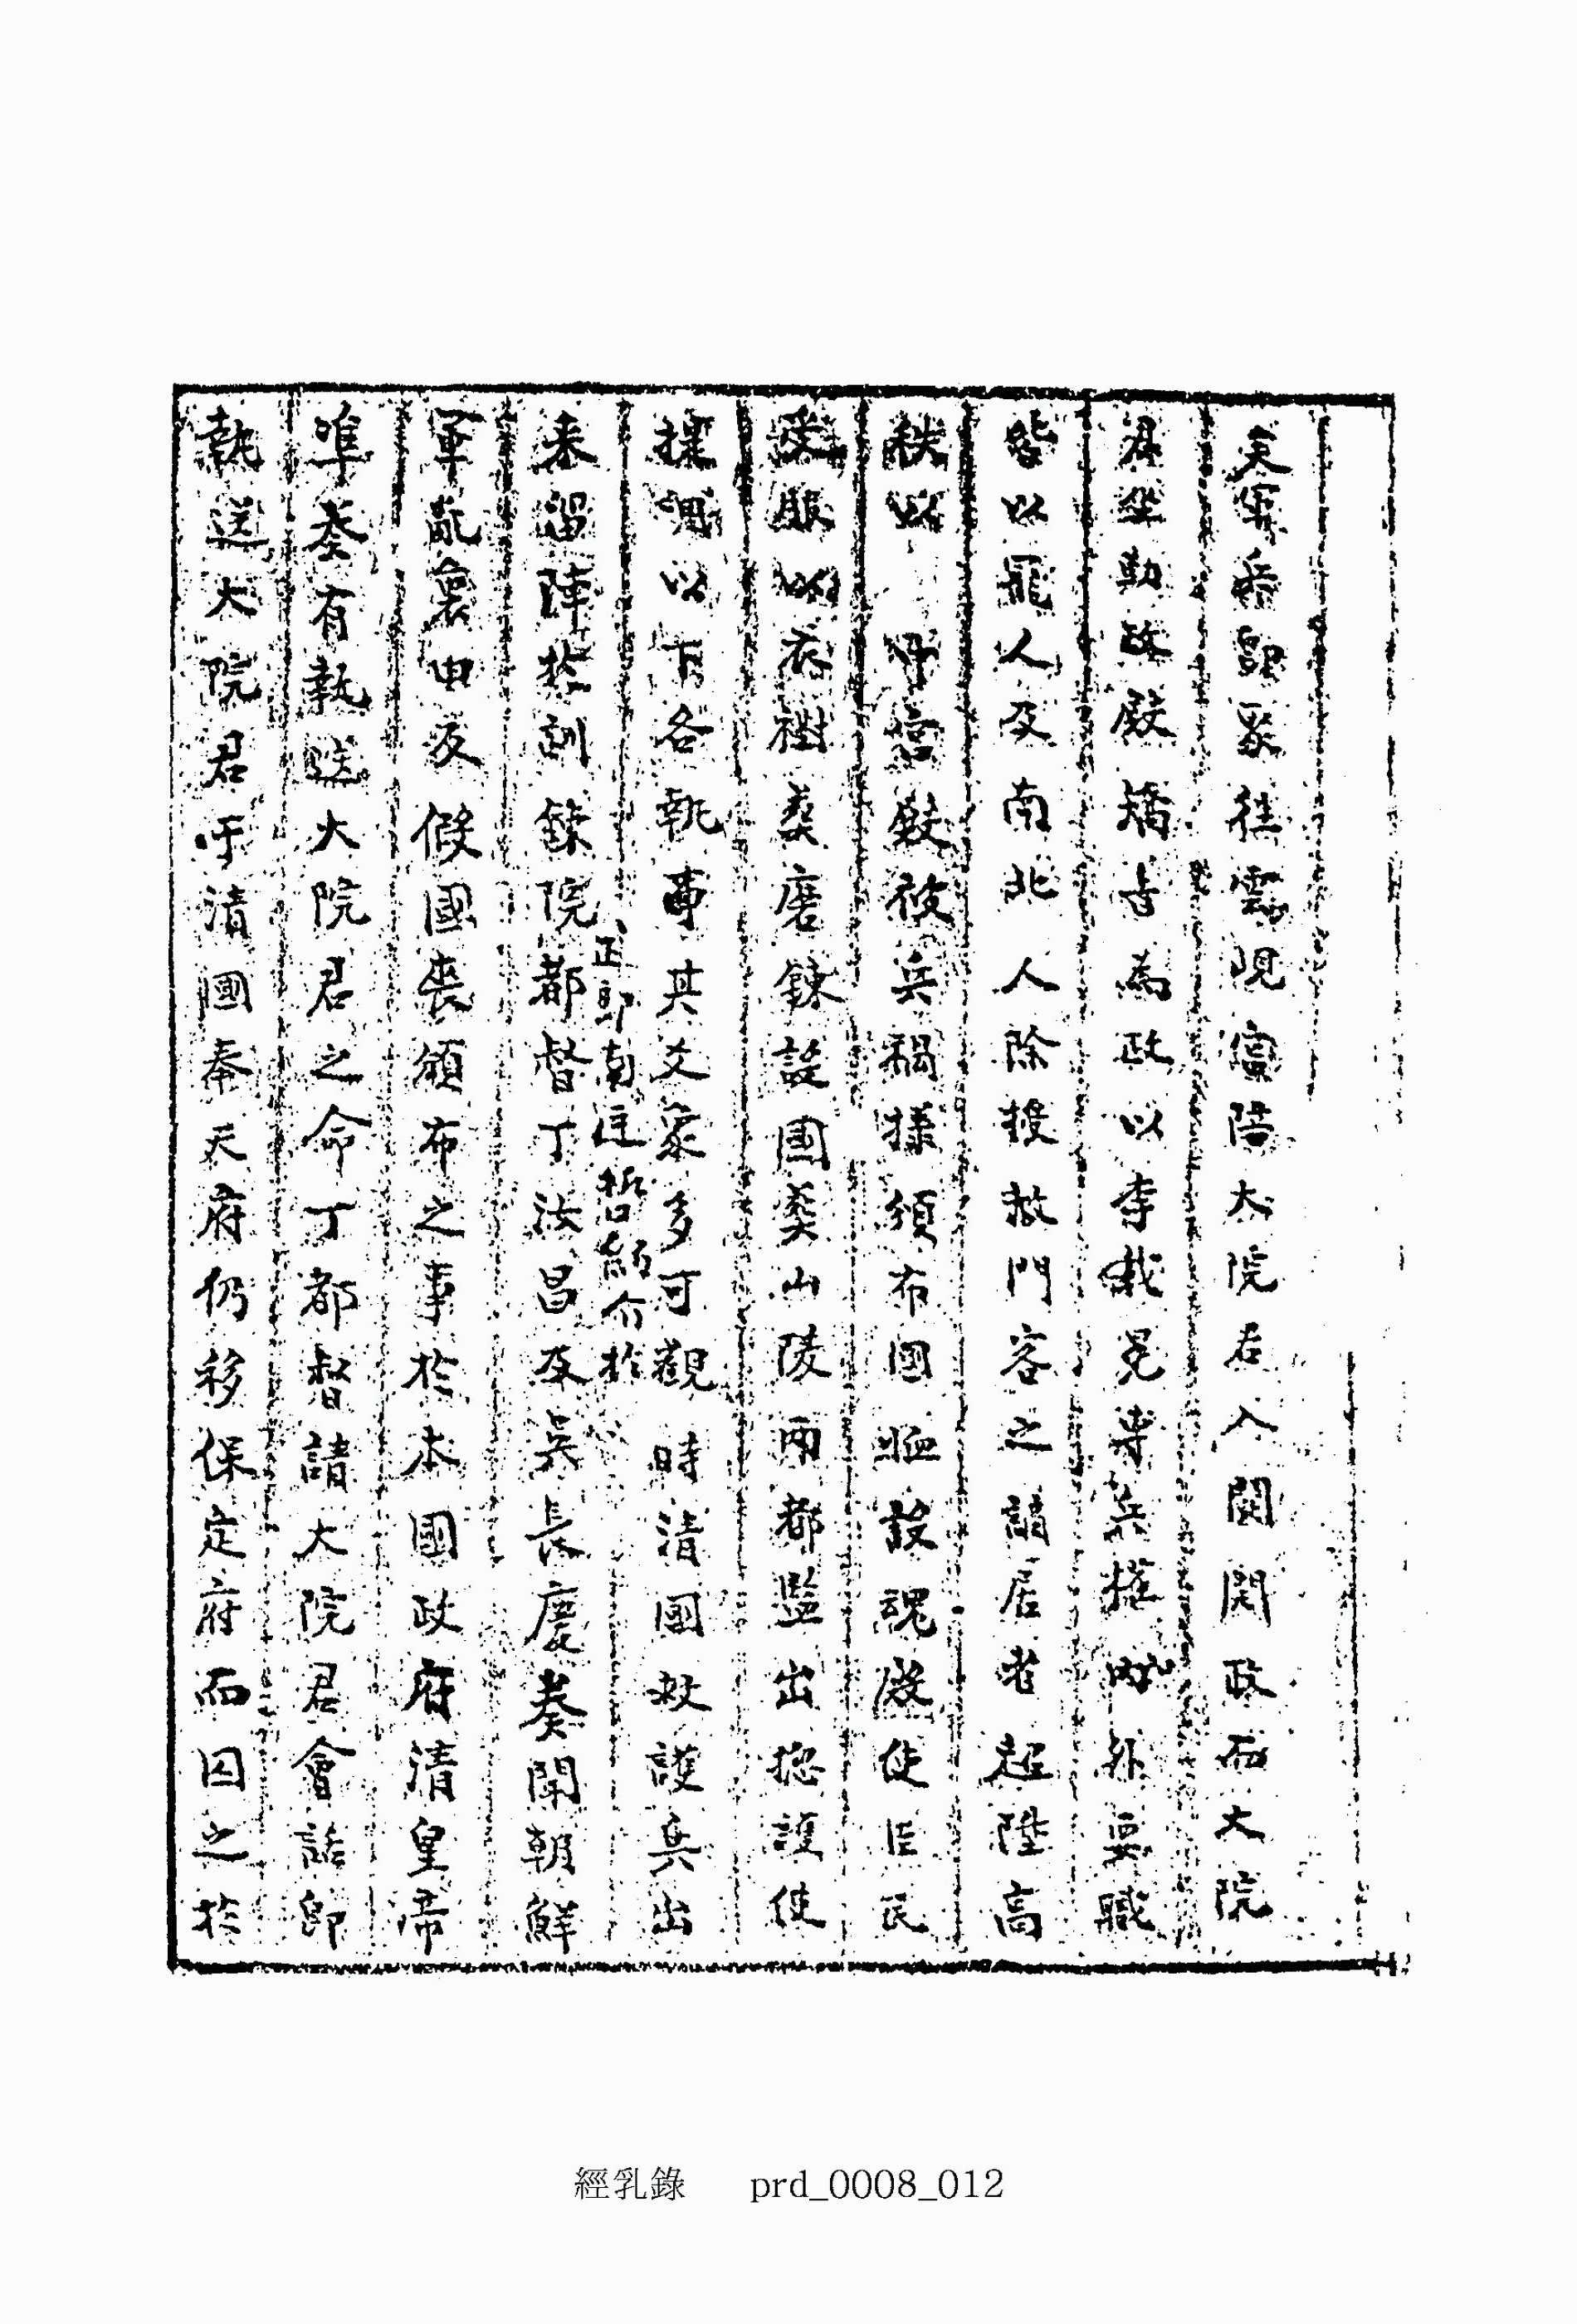 矣軍兵卽各往雲峴宮陪大院君入闕聞政而大院
君坐勤政殿矯旨爲政以李載冕專兵權內外要職
皆以罷人及南北人除授故門客之謫居者超陞高
秩以 中宮殿被兵禍揚須布國恤設魂殿使臣民
受服以衣襨葬磨鍊設國葬山陵兩都監出摠護使
攘閣以下各執事其爻象多可觀時清國救護兵出
來留陣於訓鍊院都督丁汝昌及吳長慶奏聞朝鮮
正郎南廷哲紹介於
軍亂裏由及假國喪頒布之事於本國政府清皇帝
準奏有執送大院君之命丁都督請大院君會話卽
執送大院君于清國奉天府仍移保定府而囚之於
經乳錄 prd_0008_012